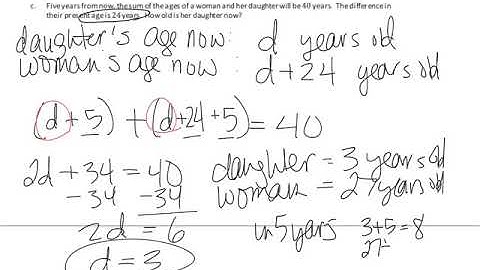 c. Five years from now, the sum of the ages of a woman and her daughter will be 40 years. The difference in
their present age is 24 years. How old is her daughter now?
daughter's age now: d years old
woman's age now: d+24 years old
(d+5) + (d+24+5) = 40
2d + 34 = 40
-34 -34
2d = 6
d = 3
daughter = 3 years old
woman = 27 years old
in 5 years 3+5=8
27+